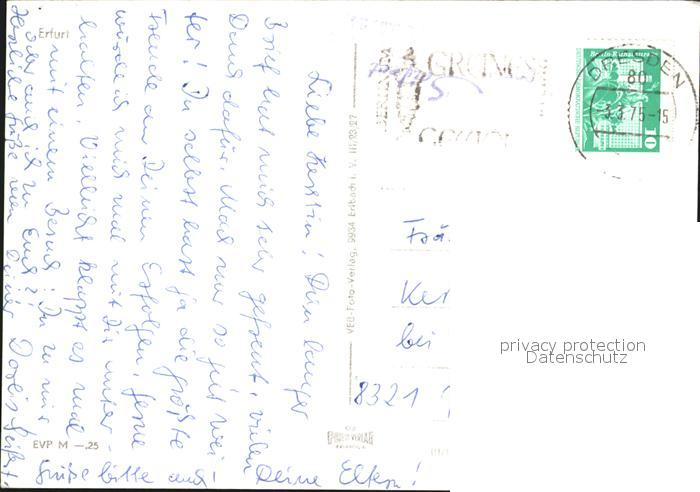 Erfurt
Liebe Kerstin! Dein langer
Brief hat mich sehr gefreut, vielen
Dank dafür. Mach nur so gut wei-
ter! Du selbst hast ja die größte
Freude an Deinen Erfolgen. Gerne
würde ich mich mal mit Dir unter-
halten. Vielleicht klappt es mal
mit einem Besuch! Du zu mir
oder auch ich zu Euch?!
Herzliche Grüße von Deiner Doris Seifert.
Grüße bitte auch Deine Eltern!
EVP M —.25
VEB-Foto-Verlag, 99654 Erlbach i. V.
GRÜNES
DRESDEN
80
-3.3.75-15
10
Frä.
Ker
bei
8321
privacy protection
Datenschutz